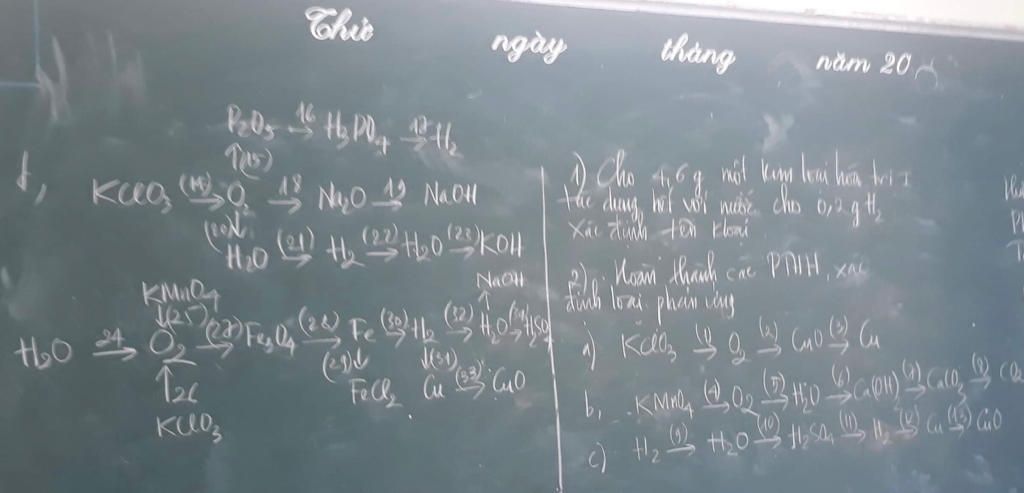 Thứ ngày tháng năm 20
P₂O₅ →16 H₃PO₄ →17 H₂
↑(15)
d, KClO₃ (14)→ O₂ →18 Na₂O →19 NaOH
(20)↓
H₂O (21)→ H₂ (22)→ H₂O (23)→ KOH
KMnO₄ NaOH
↓(25) ↑
H₂O 24→ O₂ (27)→ Fe₃O₄ (28)→ Fe (30)→ H₂ (32)→ H₂O → H₂SO₄
↑26 (29)↓ ↓(31)
KClO₃ FeCl₂ Cu (33)→ CuO
1) Cho 4,6 g một kim loại hóa trị I
tác dụng hết với nước cho 0,2 g H₂
Xác định tên kloại
2) Hoàn thành các PTHH, xác
định loại phản ứng
a) KClO₃ (1)→ O₂ (2)→ CuO (3)→ Cu
b, KMnO₄ (4)→ O₂ (5)→ H₂O (6)→ Ca(OH) (7)→ CaCO₃ (8)→ CO₂
c) H₂ (9)→ H₂O (10)→ H₂SO₄ (11)→ H₂ (12)→ Cu (13)→ CuO